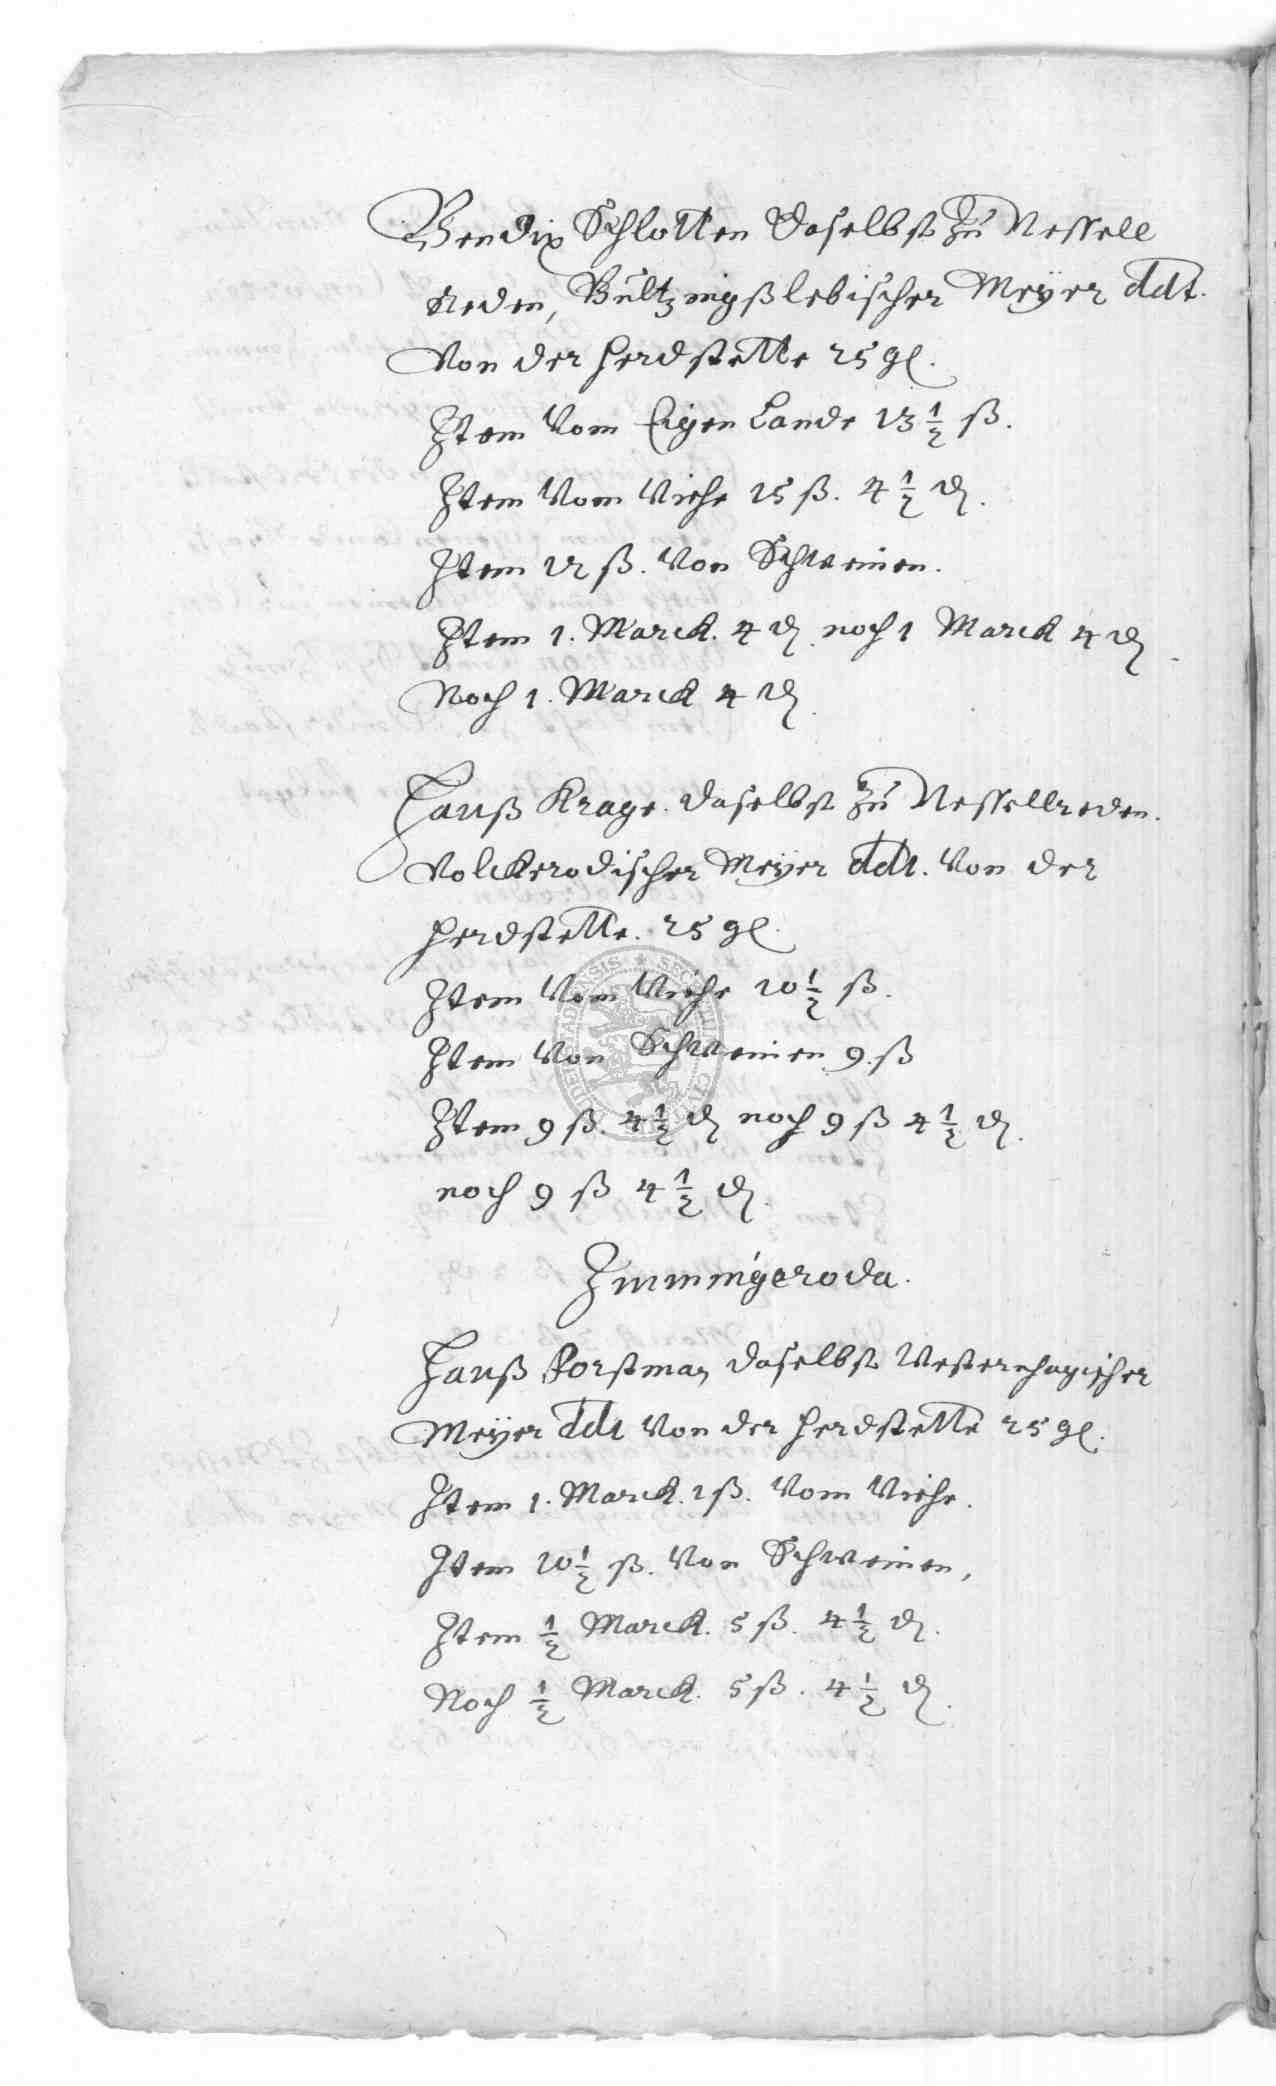 Bendix Schlotten daselbst zu Nessell
Reden, Bultzingßlebischer Meÿer ddt.
Von der Herdstette 25 gl.
Item Vom Eigen Lande 13 1/2 ß.
Item Vom Viehe 15 ß. 4 1/2 ₰.
Item 12 ß. Von Schweinen.
Item 1. Marck. 4 ₰. noch 1 Marck 4 ₰
Noch 1. Marck 4 ₰.
Hanß Krage. daselbst zu Nessellreden.
Volckerodischer Meÿer ddt. Von der
Herdstette. 25 gl.
Item Vom Viehe 10 1/2 ß.
Item Von Schweinen 9. ß
Item 9 ß. 4 1/2 ₰ noch 9 ß 4 1/2 ₰.
noch 9 ß 4 1/2 ₰.
Immingeroda.
Hanß Forstman daselbst Westernhagischer
Meÿer ddt Von der Herdstette 25 gl.
Item 1. Marck. 1 ß. Vom Viehe.
Item 10 1/2 ß. Von Schweinen,
Item 1/2 Marck. 5 ß. 4 1/2 ₰.
Noch 1/2 Marck. 5 ß. 4 1/2 ₰.